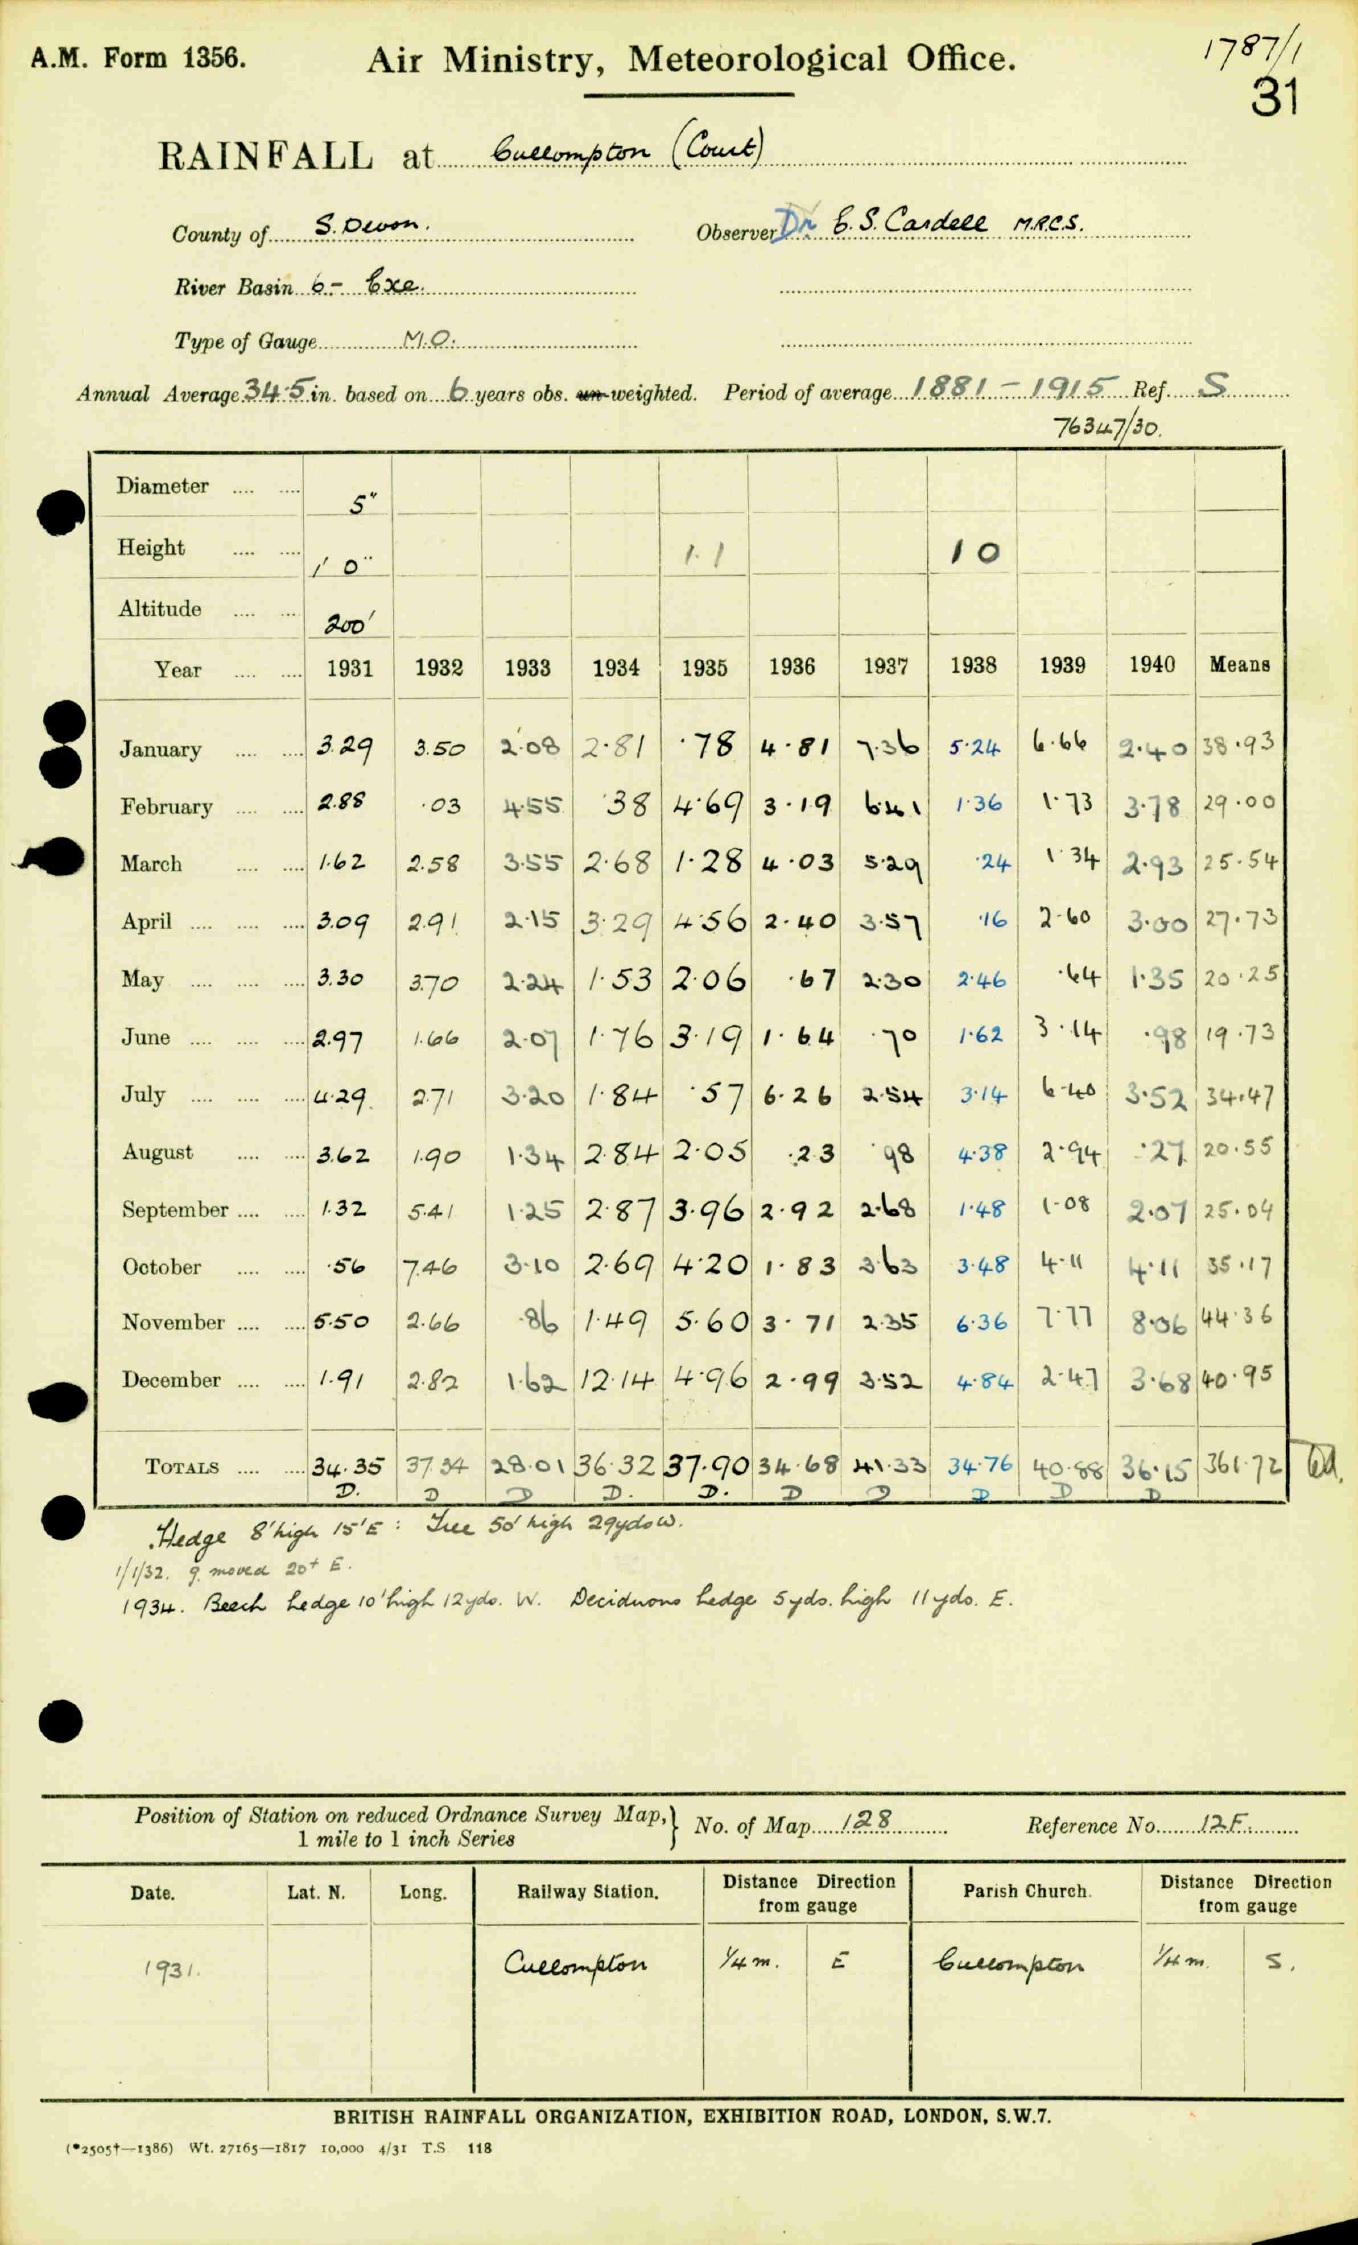 A.M. Form 1356. Air Ministry, Meteorological Office. 1787/1
31
RAINFALL at Cullompton (Court)
County of S. Devon. Observer Dr E. S. Cardell M.R.C.S.
River Basin 6 - Exe.
Type of Gauge M.O.
Annual Average 34.5 in. based on 6 years obs. un-weighted. Period of average 1881 - 1915 Ref. S
76347/30.
Diameter .... .... 5"
Height .... .... 1' 0" 1.1 1 0
Altitude .... .... 200'
Year .... .... 1931 1932 1933 1934 1935 1936 1937 1938 1939 1940 Means
January .... .... 3.29 3.50 2.08 2.81 .78 4.81 7.36 5.24 6.66 2.40 38.93
February .... .... 2.88 .03 4.55 .38 4.69 3.19 6.41 1.36 1.73 3.78 29.00
March .... .... 1.62 2.58 3.55 2.68 1.28 4.03 5.29 .24 1.34 2.93 25.54
April .... .... .... 3.09 2.91 2.15 3.29 4.56 2.40 3.57 .16 2.60 3.00 27.73
May .... .... .... 3.30 3.70 2.24 1.53 2.06 .67 2.30 2.46 .64 1.35 20.25
June .... .... .... 2.97 1.66 2.07 1.76 3.19 1.64 .70 1.62 3.14 .98 19.73
July .... .... .... 4.29 2.71 3.20 1.84 .57 6.26 2.54 3.14 6.40 3.52 34.47
August .... .... 3.62 1.90 1.34 2.84 2.05 .23 .98 4.38 2.94 .27 20.55
September .... .... 1.32 5.41 1.25 2.87 3.96 2.92 2.68 1.48 1.08 2.07 25.04
October .... .... .56 7.46 3.10 2.69 4.20 1.83 3.63 3.48 4.11 4.11 35.17
November .... .... 5.50 2.66 .86 1.49 5.60 3.71 2.35 6.36 7.77 8.06 44.36
December .... .... 1.91 2.82 1.62 12.14 4.96 2.99 3.52 4.84 2.47 3.68 40.95
TOTALS .... .... 34.35 37.34 28.01 36.32 37.90 34.68 41.33 34.76 40.88 36.15 361.72
D. D D D. D. D D D D D
Hedge 8' high 15' E : Tree 50' high 29yds W.
1/1/32. g. moved 20+ E.
1934. Beech hedge 10' high 12yds. W. Deciduous hedge 5yds. high 11yds. E.
Position of Station on reduced Ordnance Survey Map,} No. of Map 128 Reference No. 12F.
1 mile to 1 inch Series
Date. Lat. N. Long. Railway Station. Distance Direction from gauge Parish Church. Distance Direction from gauge
1931. Cullompton 1/4 m. E Cullompton 1/4 m. S.
BRITISH RAINFALL ORGANIZATION, EXHIBITION ROAD, LONDON, S.W.7.
(*2505†—1386) Wt. 27165—1817 10,000 4/31 T.S 118